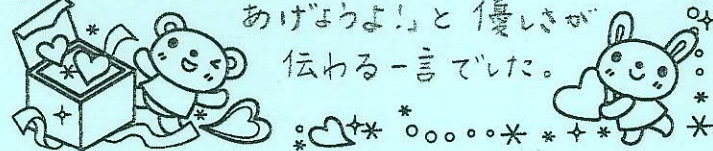 あげようよ!」と優しさが
伝わる一言でした。